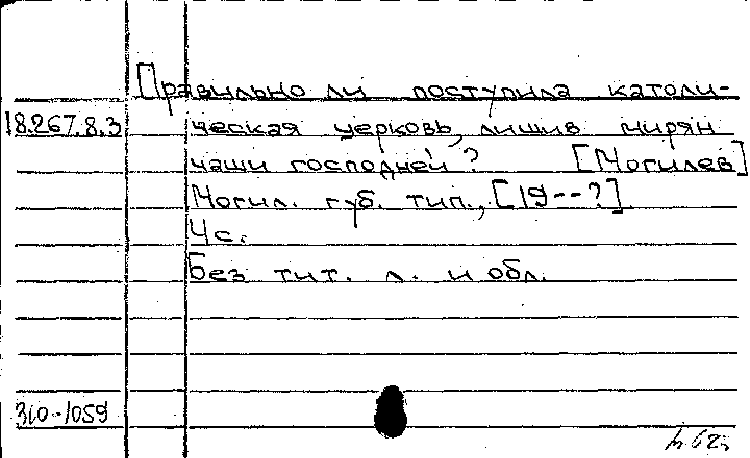 Правильно ли поступила католи-
18.267.8.3 ческая церковь, лишив мирян
чаши господней? [Могилев]
Могил. губ. тип., [19--?]
4 с.
Без тит. л. и обл.
310-1059